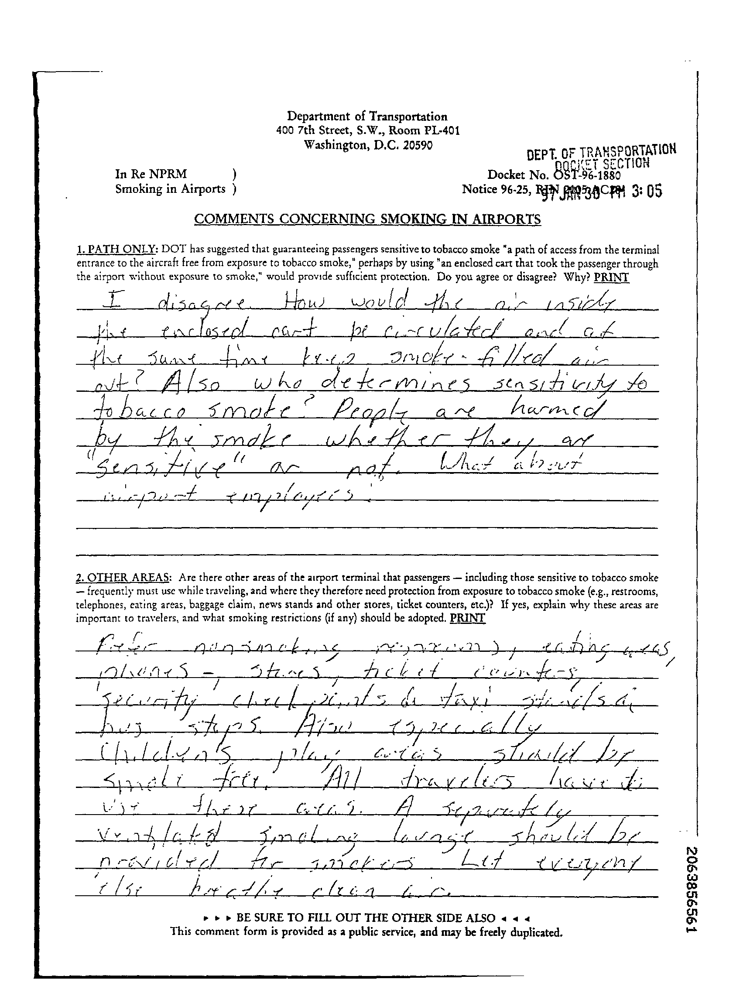 Department of Transportation
400 7th Street, S.W., Room PL-401
Washington, D.C. 20590
DEPT. OF TRANSPORTATION
DOCKET SECTION
In Re NPRM )
Docket No. OST-96-1880
Smoking in Airports )
Notice 96-25, 3: 05
COMMENTS CONCERNING SMOKING IN AIRPORTS
1. PATH ONLY: DOT has suggested that guaranteeing passengers sensitive to tobacco smoke "a path of access from the terminal
entrance to the aircraft free from exposure to tobacco smoke," perhaps by using "an enclosed cart that took the passenger through
the airport without exposure to smoke," would provide sufficient protection. Do you agree or disagree? Why? PRINT
I disagree. How would the air inside
the enclosed cart be circulated and at
the same time keep smoke-filled air
out? Also who determines sensitivity to
tobacco smoke? People are harmed
by the smoke whether they are
"sensitive" or not. What about
airport employees?
2. OTHER AREAS: Are there other areas of the airport terminal that passengers — including those sensitive to tobacco smoke
— frequently must use while traveling, and where they therefore need protection from exposure to tobacco smoke (e.g., restrooms,
telephones, eating areas, baggage claim, news stands and other stores, ticket counters, etc.)? If yes, explain why these areas are
important to travelers, and what smoking restrictions (if any) should be adopted. PRINT
nonsmoking eating areas,
phones - stores, ticket counters,
security check points taxi stands
bus stops. Also especially
Children's play areas should be
smoke free. All travelers have to
use these areas. A separately
ventilated smoking lounge should be
provided for smokers Let everyone
else breathe clean air.
▸ ▸ ▸ BE SURE TO FILL OUT THE OTHER SIDE ALSO ◂ ◂ ◂
This comment form is provided as a public service, and may be freely duplicated.
2063856561